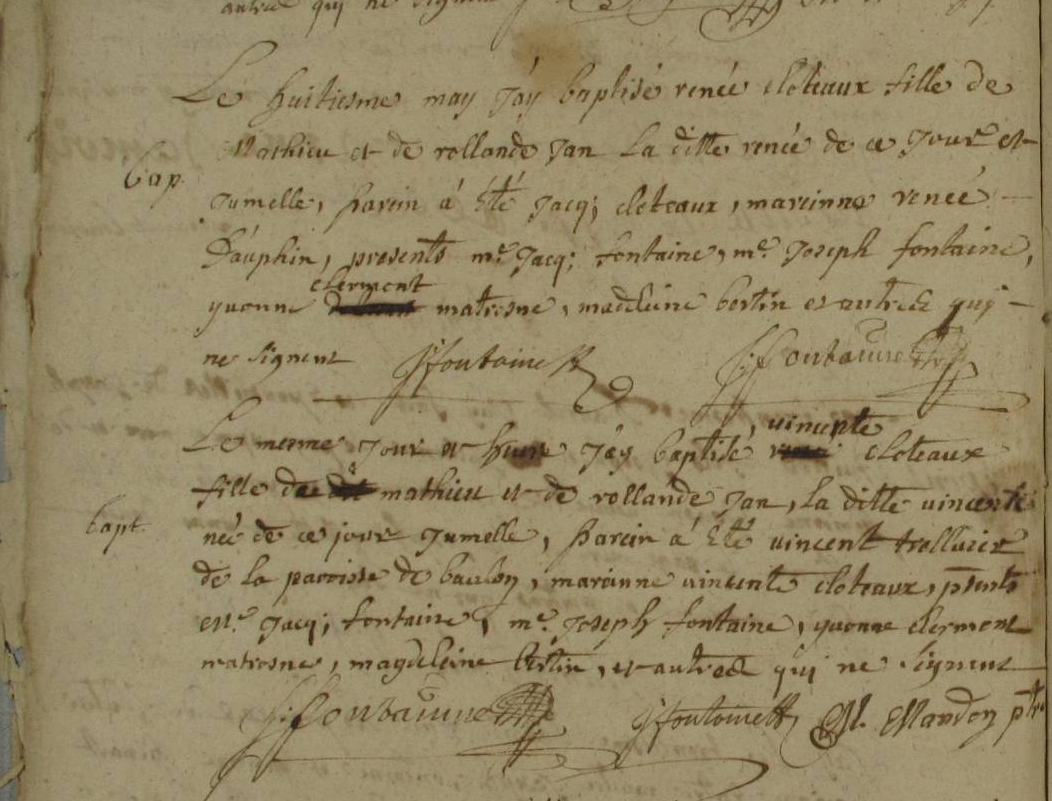 autres qui ne signent
Le huitiesme may j'ay baptisé renée cloteaux fille de
Mathieu et de rollande Jan la ditte renée de ce Jour et
bap.
Jumelle, parein á été Jacq; cloteaux, mareinne renée
Dauphin, presents me. Jacq; fontaine, me. Joseph fontaine,
clermont
yvonne matrosne, madeleine bertin et autres qui
ne signent JFontaine J; fontaine
vincente
Le mesme Jour et heure J'ay baptisé cloteaux
fille de mathieu et de rollande Jan, la ditte vincente
bapt.
née de ce jour Jumelle, parein á été vincent trelluier
de la paroisse de baulon, mareinne vincente cloteaux, pnts
me. Jacq; fontaine, me. Joseph fontaine, yvonne clermont
matrosne, magdeleine bertin, et autres qui ne signent
J; fontaine JFontaine M. Mandon ptre